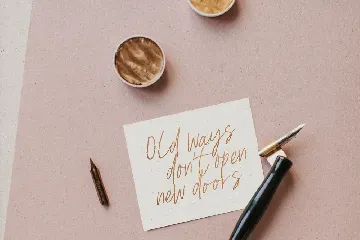 Old ways
don't open
new doors